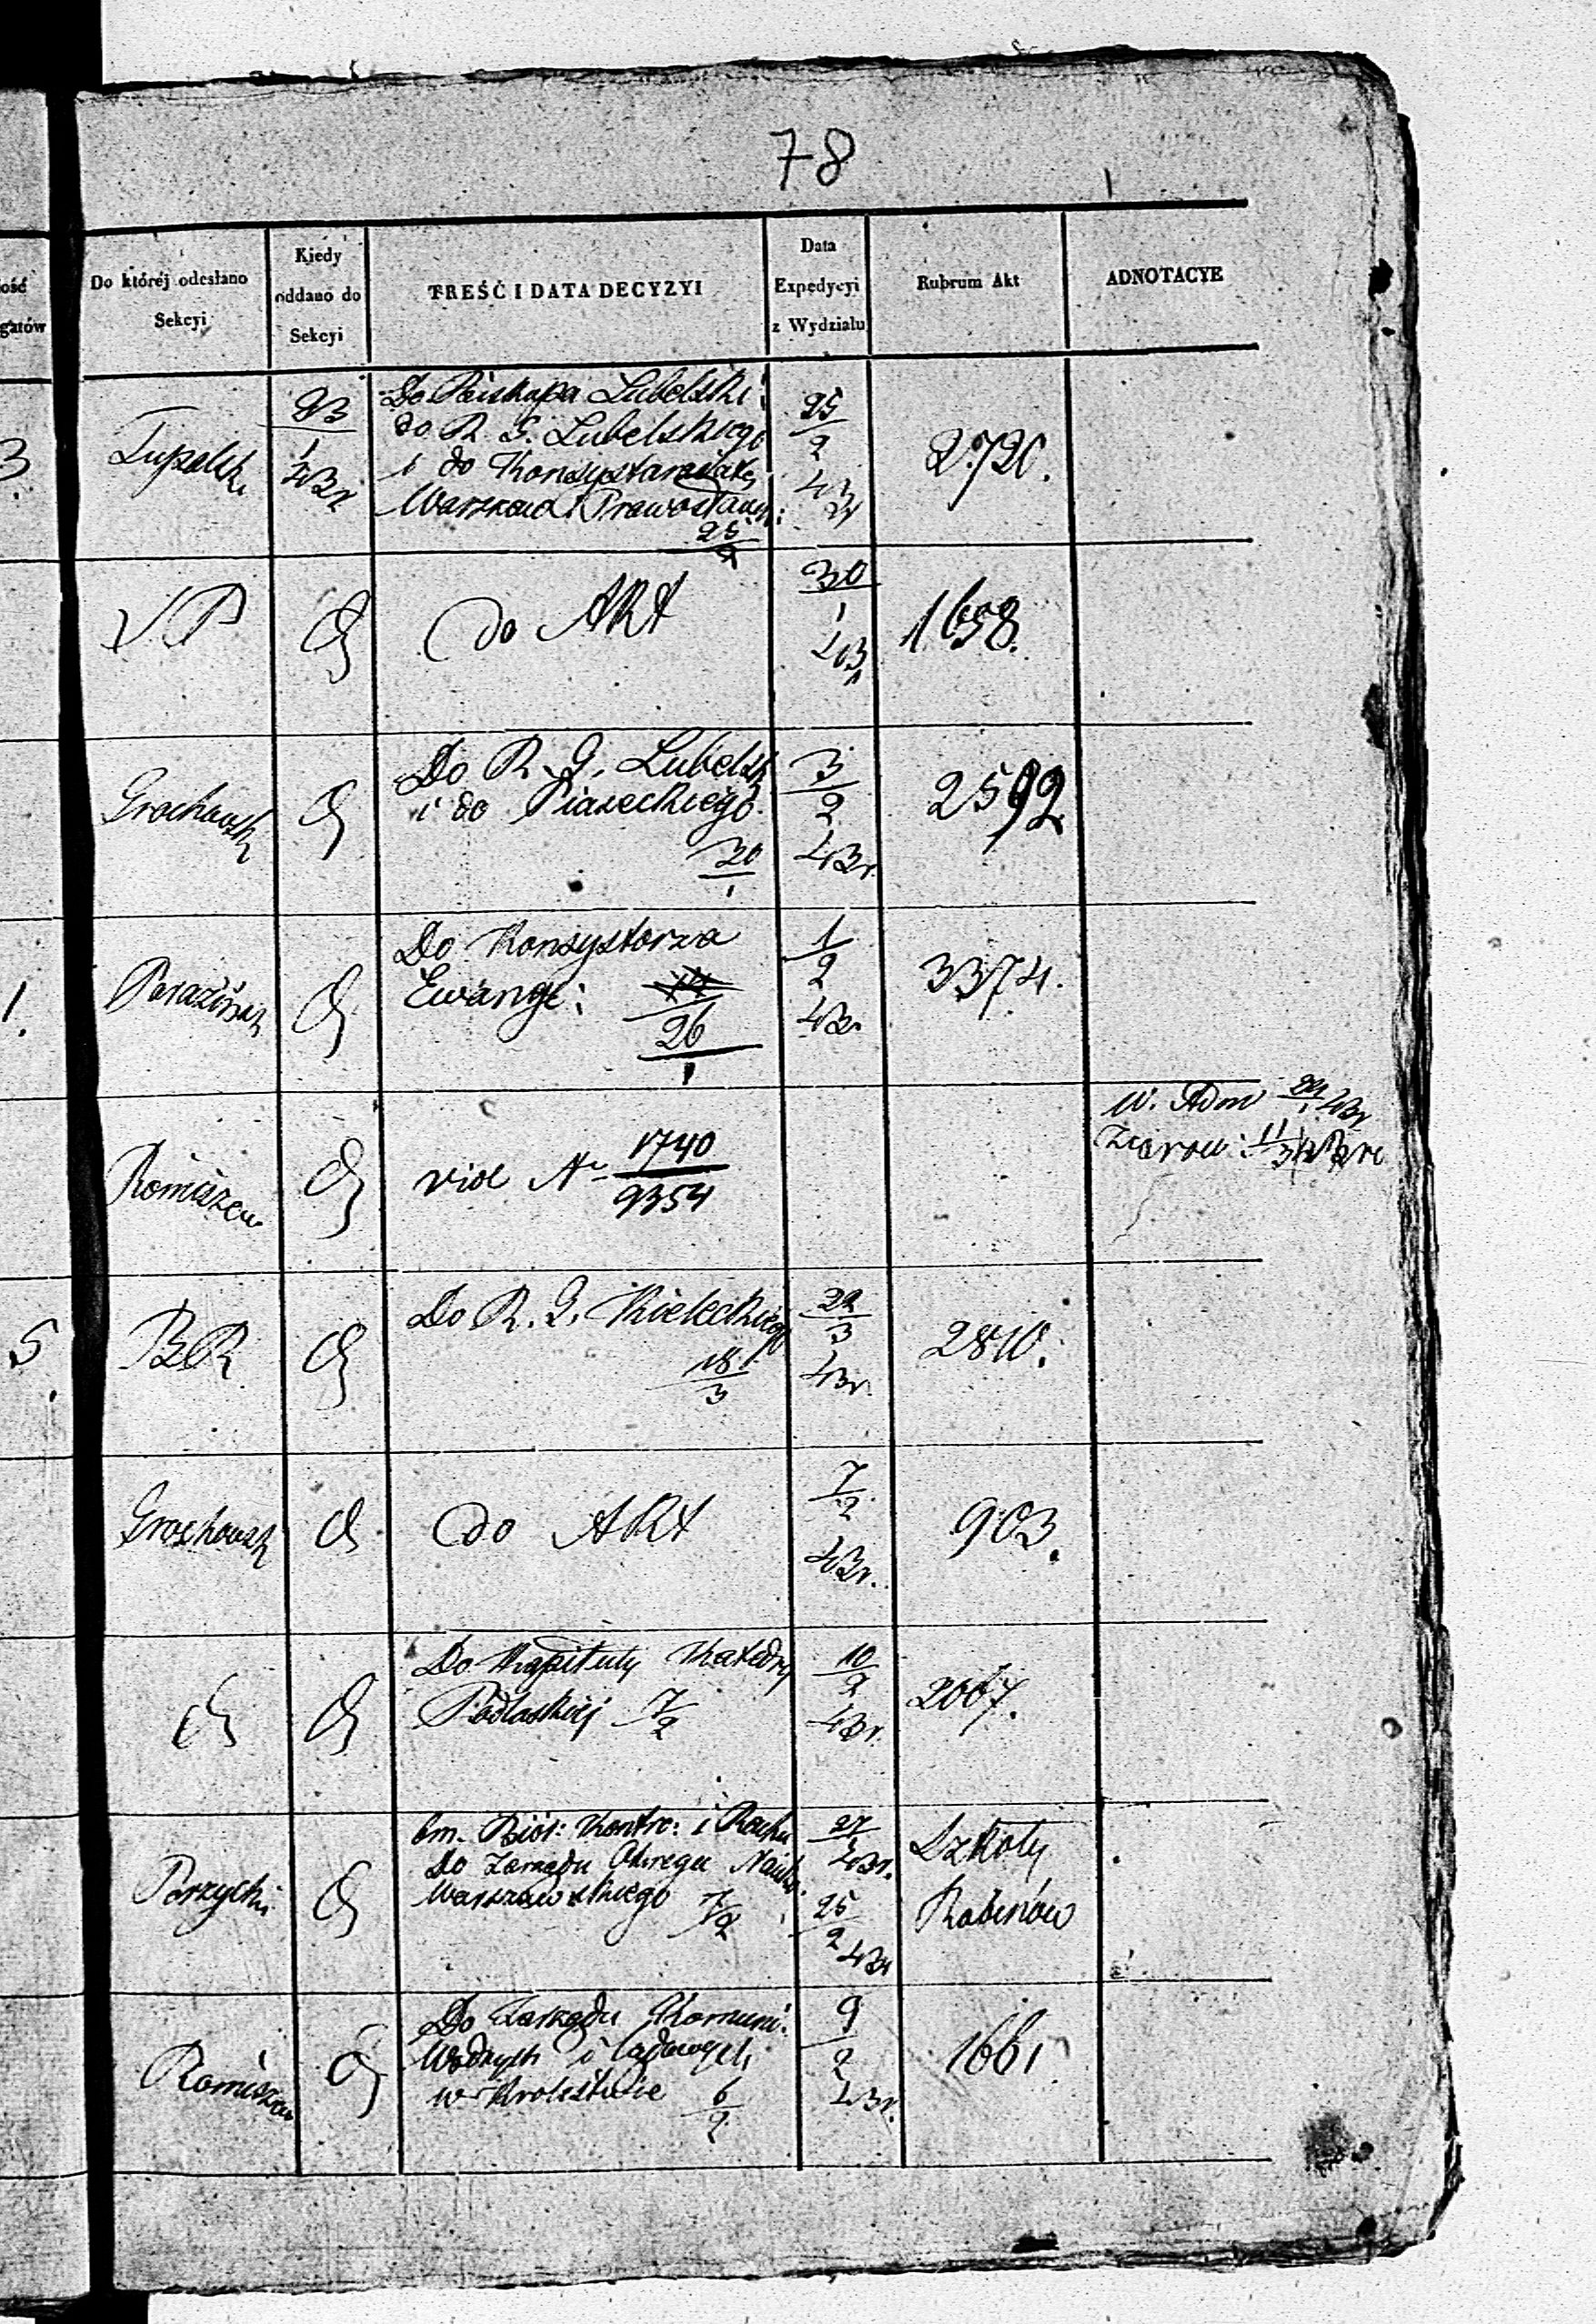 78
Do któréj odesłano Sekcyi
Kiedy oddano do Sekcyi
TREŚĆ I DATA DECYZYI
Data Expedycyi z Wydziału
Rubrum Akt
ADNOTACYE
ość
gatów
3.
23
1
43r
Do Biskupa Lubelski:
do R. G. Lubelskiego
i do Konsystorza
25
2
25
2
43r
2720.
VP
do Akt
30
1
43
1658.
Grochowsk
Do R. G. Lubelsk
i do Piaseckiego.
30
1
3
2
43r.
2592
1.
Do Konsystorza
Ewangi:
26
1
1
2
43r
3374.
Romiszew
vide Nr 1740
9354
W. Adm
5.
BR
Do R. G. Kieleckiego
18
3
22
3
43r.
2810.
Grochowsk
do Akt
7
2
43r.
903.
Do Kapituly Katedry
Podlaskiej 7
2
10
2
43r.
2067.
Porzycki
Kontr: i Rachu
Do Zarządu Okręgu Nauko.
Warszawskiego 7
2
27
43r.
25
2
43r
Szkoły
Rabinów
Romiszew
Do Zarządu Komuni:
Wodnych i lądowych
w Krolestwie 6
2
9
2
43r.
1661